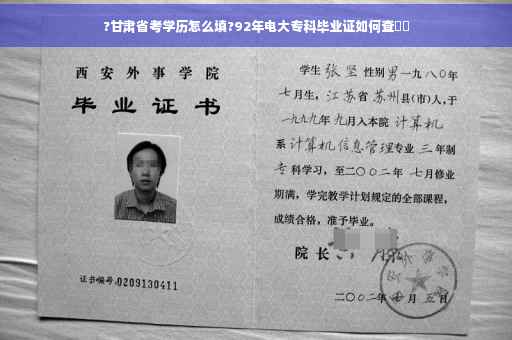 ?甘肃省考学历怎么填?92年电大专科毕业证如何查
西安外事学院
毕业证书
证书编号:0209130411
学生 张坚 性别 男 一九八〇年
七月生,江苏省 苏州 县(市)人,于
一九九九年 九月入本院 计算机
系 计算机信息管理 专业 三 年制
专 科学习,至二〇〇二年 七月修业
期满,学完教学计划规定的全部课程,
成绩合格,准予毕业。
院长
二〇〇二年 月 五日